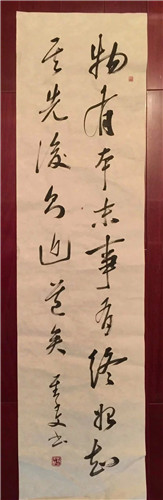 物有本末事有終始知
所先後則近道矣 書